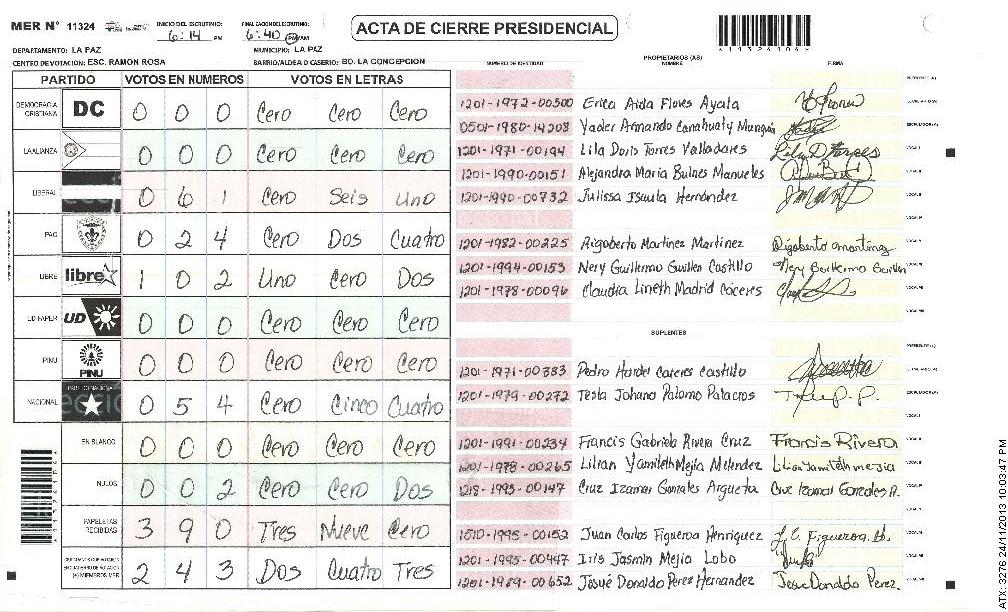 MER N° 11324
INICIO DEL ESCRUTINIO: 6:14 PM
FINALIZACION DEL ESCRUTINIO: 6:40 PM/AM
ACTA DE CIERRE PRESIDENCIAL
DEPARTAMENTO: LA PAZ
MUNICIPIO: LA PAZ
CENTRO DE VOTACION: ESC. RAMON ROSA
BARRIO/ALDEA O CASERIO: BO. LA CONCEPCION
PARTIDO VOTOS EN NUMEROS VOTOS EN LETRAS
DEMOCRACIA CRISTIANA DC 0 0 0 Cero Cero Cero
LA ALIANZA 0 0 0 Cero Cero Cero
LIBERAL 0 6 1 Cero Seis Uno
PAC 0 2 4 Cero Dos Cuatro
LIBRE libre 1 0 2 Uno Cero Dos
UD FAPER UD 0 0 0 Cero Cero Cero
PINU PINU 0 0 0 Cero Cero Cero
NACIONAL 0 5 4 Cero Cinco Cuatro
EN BLANCO 0 0 0 Cero Cero Cero
NULOS 0 0 2 Cero Cero Dos
PAPELETAS RECIBIDAS 3 9 0 Tres Nueve Cero
2 4 3 Dos Cuatro Tres
NUMERO DE IDENTIDAD
PROPIETARIOS (AS)
NOMBRE
FIRMA
1201-1972-00500 Erica Aida Flores Ayala
0501-1980-14208 Yader Armando Canahuaty Munguia
1201-1971-00194 Lila Doris Torres Valladares Lila D Torres
1201-1990-00151 Alejandra Maria Bulnes Manueles
1201-1990-00732 Julissa Isaula Hernández
1201-1982-00225 Rigoberto Martinez Martinez Rigoberto Martinez
1201-1994-00153 Nery Guillermo Guillen Castillo Nery Guillermo Guillen
1201-1978-00096 Claudia Lineth Madrid Caceres
SUPLENTES
1201-1971-00383 Pedro Hardel Caceres Castillo
1201-1979-00272 Tesla Johana Palomo Palacios
1201-1991-00234 Francis Gabriela Rivera Cruz Francis Rivera
1201-1978-00265 Lilian Yamileth Mejia Melendez Lilian Yamileth mejia
1218-1995-00147 Cruz Izamar Gonzales Argueta Cruz Izamar Gonzales A.
1510-1995-00152 Juan Carlos Figueroa Henriquez J. C. Figueroa. H.
1201-1995-00447 Iris Jasmin Mejia Lobo
1201-1989-00652 Josué Donaldo Perez Hernandez Josue Donaldo Perez.
ATX: 3276 24/11/2013 10:03:47 PM